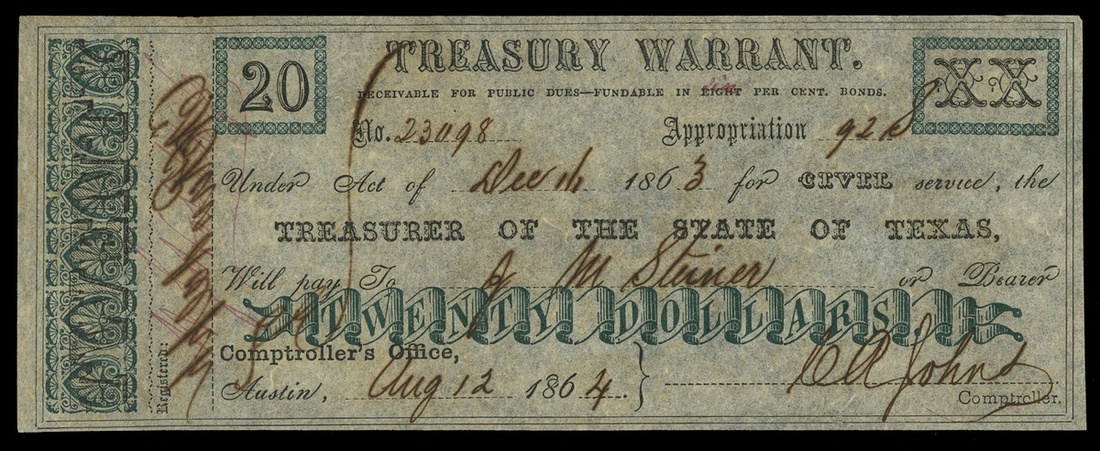 20
TREASURY WARRANT.
XX
RECEIVABLE FOR PUBLIC DUES—FUNDABLE IN EIGHT PER CENT. BONDS.
No. 23098 Appropriation 928
Under Act of Dec 16 1863 for CIVIL service, the
TREASURER OF THE STATE OF TEXAS,
Will pay To J M Steiner or Bearer
TWENTY DOLLARS,
Comptroller's Office,
Austin, Aug 12 1864
C R Johns
Comptroller.
Registered: